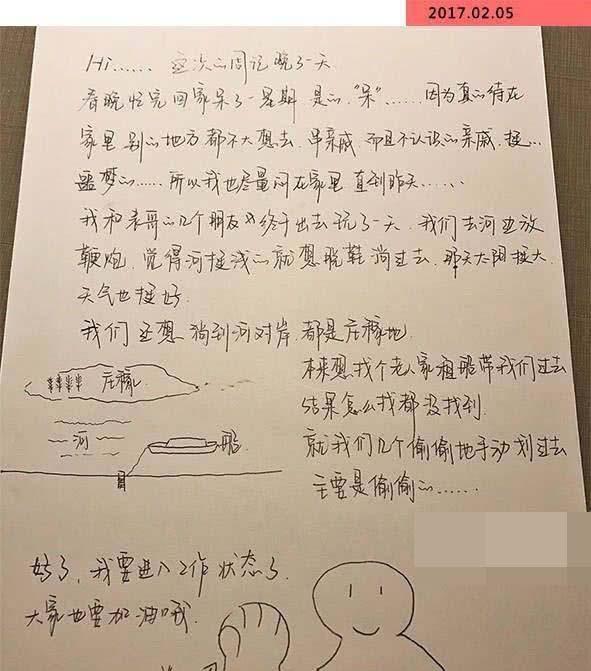 2017.02.05
Hi...... 这次的周记晚了一天
春晚忙完回家呆了一星期 是的."呆"...... 因为真的待在
家里 别的地方都不大想去. 串亲戚 而且不认识的亲戚. 挺...
噩梦的...... 所以我也尽量闷在家里 直到昨天......
我和表哥的几个朋友 终于出去玩了一天. 我们去河边放
鞭炮. 觉得河挺浅的就想脱鞋淌过去. 那天太阳挺大.
天气也挺好.
我们还想淌到河对岸 都是庄稼地.
本来想找个老人家租船带我们过去
结果怎么找都没找到.
就我们几个偷偷地手动划过去
主要是偷偷的......
庄稼
河
船
好了, 我要进入工作状态了.
大家也要加油哦.